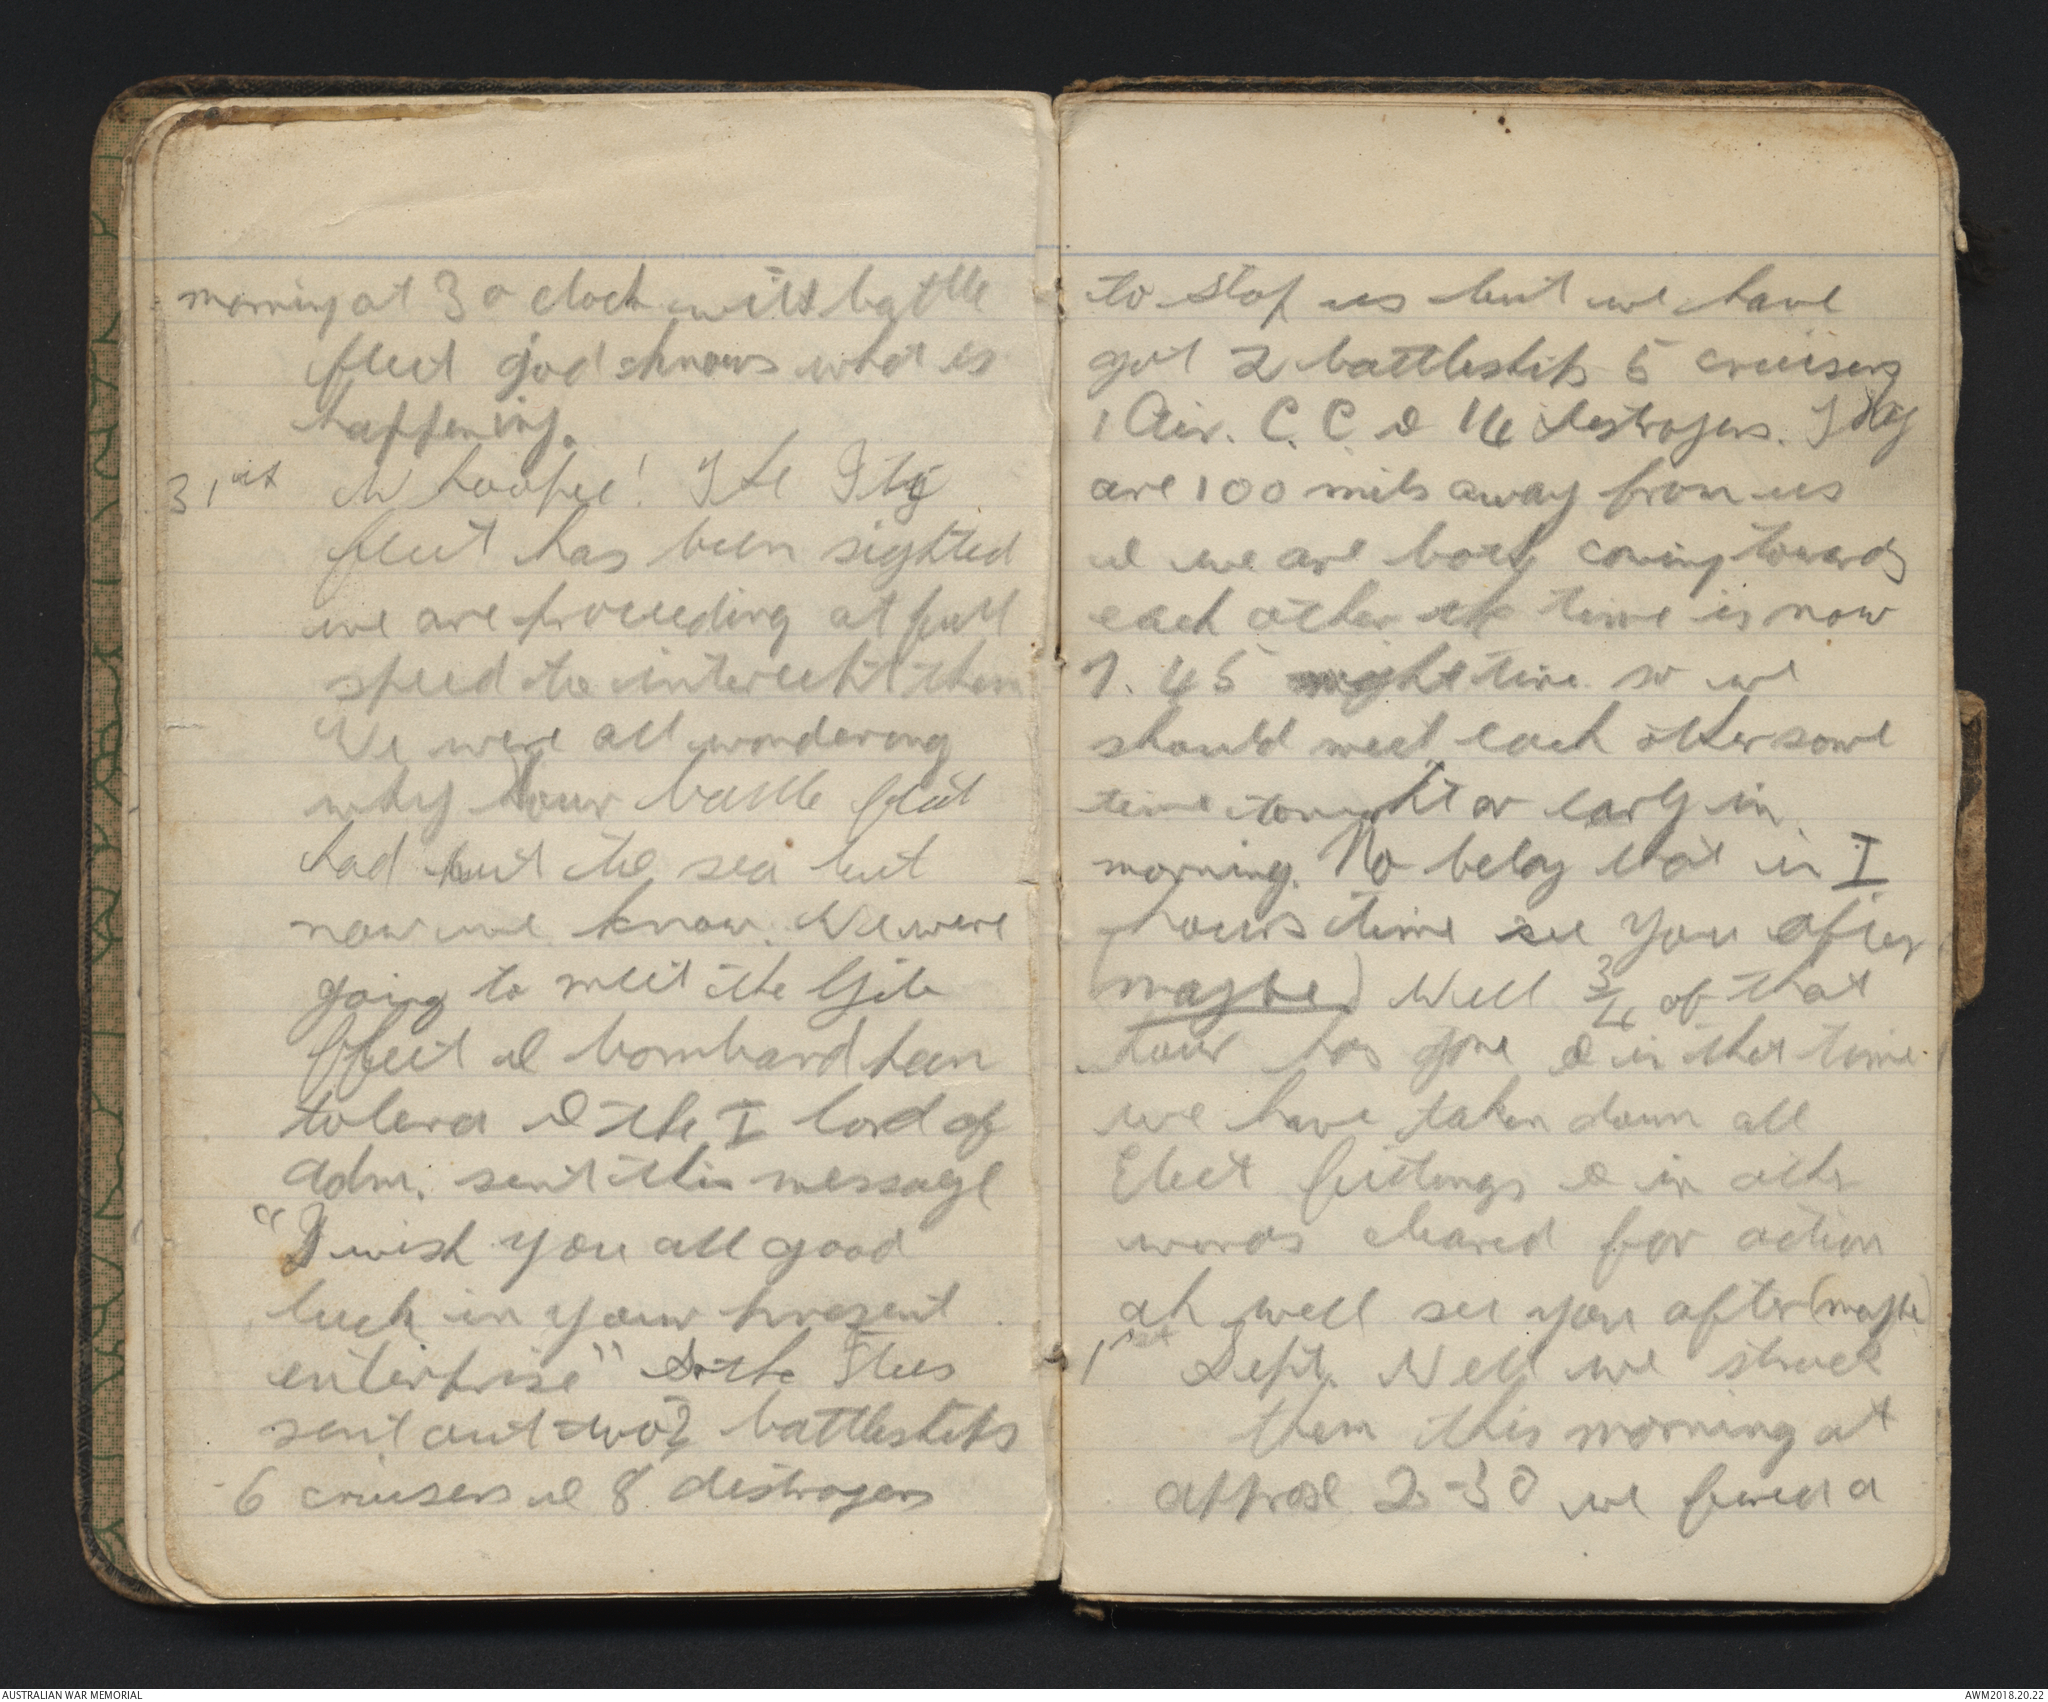 morning at 3 o clock with battle
fleet god knows what is
happening.
31st Whoopee! The Ity
fleet has been sighted
we are proceeding at full
speed to intercept them
We were all wondering
why our battle fleet
had put to sea but
now we know. We were
going to meet the
fleet & bombard
& the I lord of
Adm. sent this message
"I wish you all good
luck in your present
enterprise" So the
sent out two 2 battleships
6 cruisers & 8 destroyers
to stop us but we have
got 2 battleships 5 cruisers
1 Air. C. C. & 14 destroyers. They
are 100 mils away from us
& we are both coming towards
each other the time is now
7.45 night time so we
should meet each other some
time tonight or early in
morning. No belay that in I
hours time see you after
(maybe) Well 3/4 of that
hour has gone & in that time
we have taken down all
Elect fittings & in other
words cleared for action
ah well see you after (maybe)
1st Sept. Well we struck
them this morning at
approx 2-30 we a
AUSTRALIAN WAR MEMORIAL
AWM2018.20.22